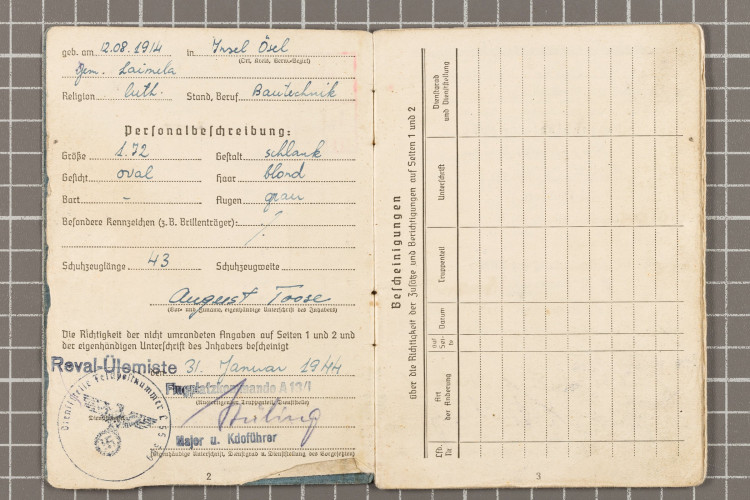 geb. am 12.08.1914 in Insel Ösel
(Ort, Kreis, Verw.-Bezirk)
Gem. Laimela
Religion luth. Stand, Beruf Bautechnik
Personalbeschreibung:
Größe 1.72 Gestalt schlank
Gesicht oval Haar blond
Bart - Augen grau
Besondere Kennzeichen (z.B. Brillenträger):
Schuhzeuglänge 43 Schuhzeugweite
August Toose
(Vor- und Zuname, eigenhändige Unterschrift des Inhabers)
Die Richtigkeit der nicht umrandeten Angaben auf Seiten 1 und 2 und
der eigenhändigen Unterschrift des Inhabers bescheinigt
Reval-Ülemiste den 31. Januar 1944
Flugplatzkommando A 13/I
Dienststelle Feldpostnummer L
Major u. Kdoführer
(Eigenhändige Unterschrift, Dienstgrad u. Dienststellung des Vorgesetzten)
2
Bescheinigungen
über die Richtigkeit der Zusätze und Berichtigungen auf Seiten 1 und 2
Lfd. Nr.
Art der Änderung
auf Seite
Datum
Truppenteil
Unterschrift
Dienstgrad und Dienststellung
3